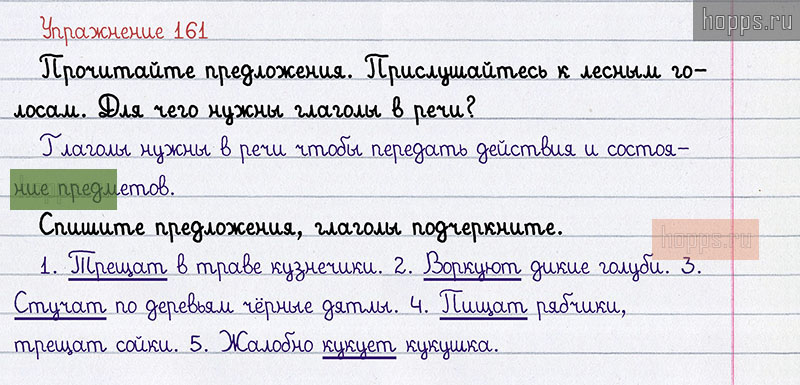 hopps.ru
Упражнение 161
Прочитайте предложения. Прислушайтесь к лесным го-
лосам. Для чего нужны глаголы в речи?
Глаголы нужны в речи чтобы передать действия и состоя-
ние предметов.
Спишите предложения, глаголы подчеркните.
hopps.ru
1. Трещат в траве кузнечики. 2. Воркуют дикие голуби. 3.
Стучат по деревьям чёрные дятлы. 4. Пищат рябчики,
трещат сойки. 5. Жалобно кукует кукушка.